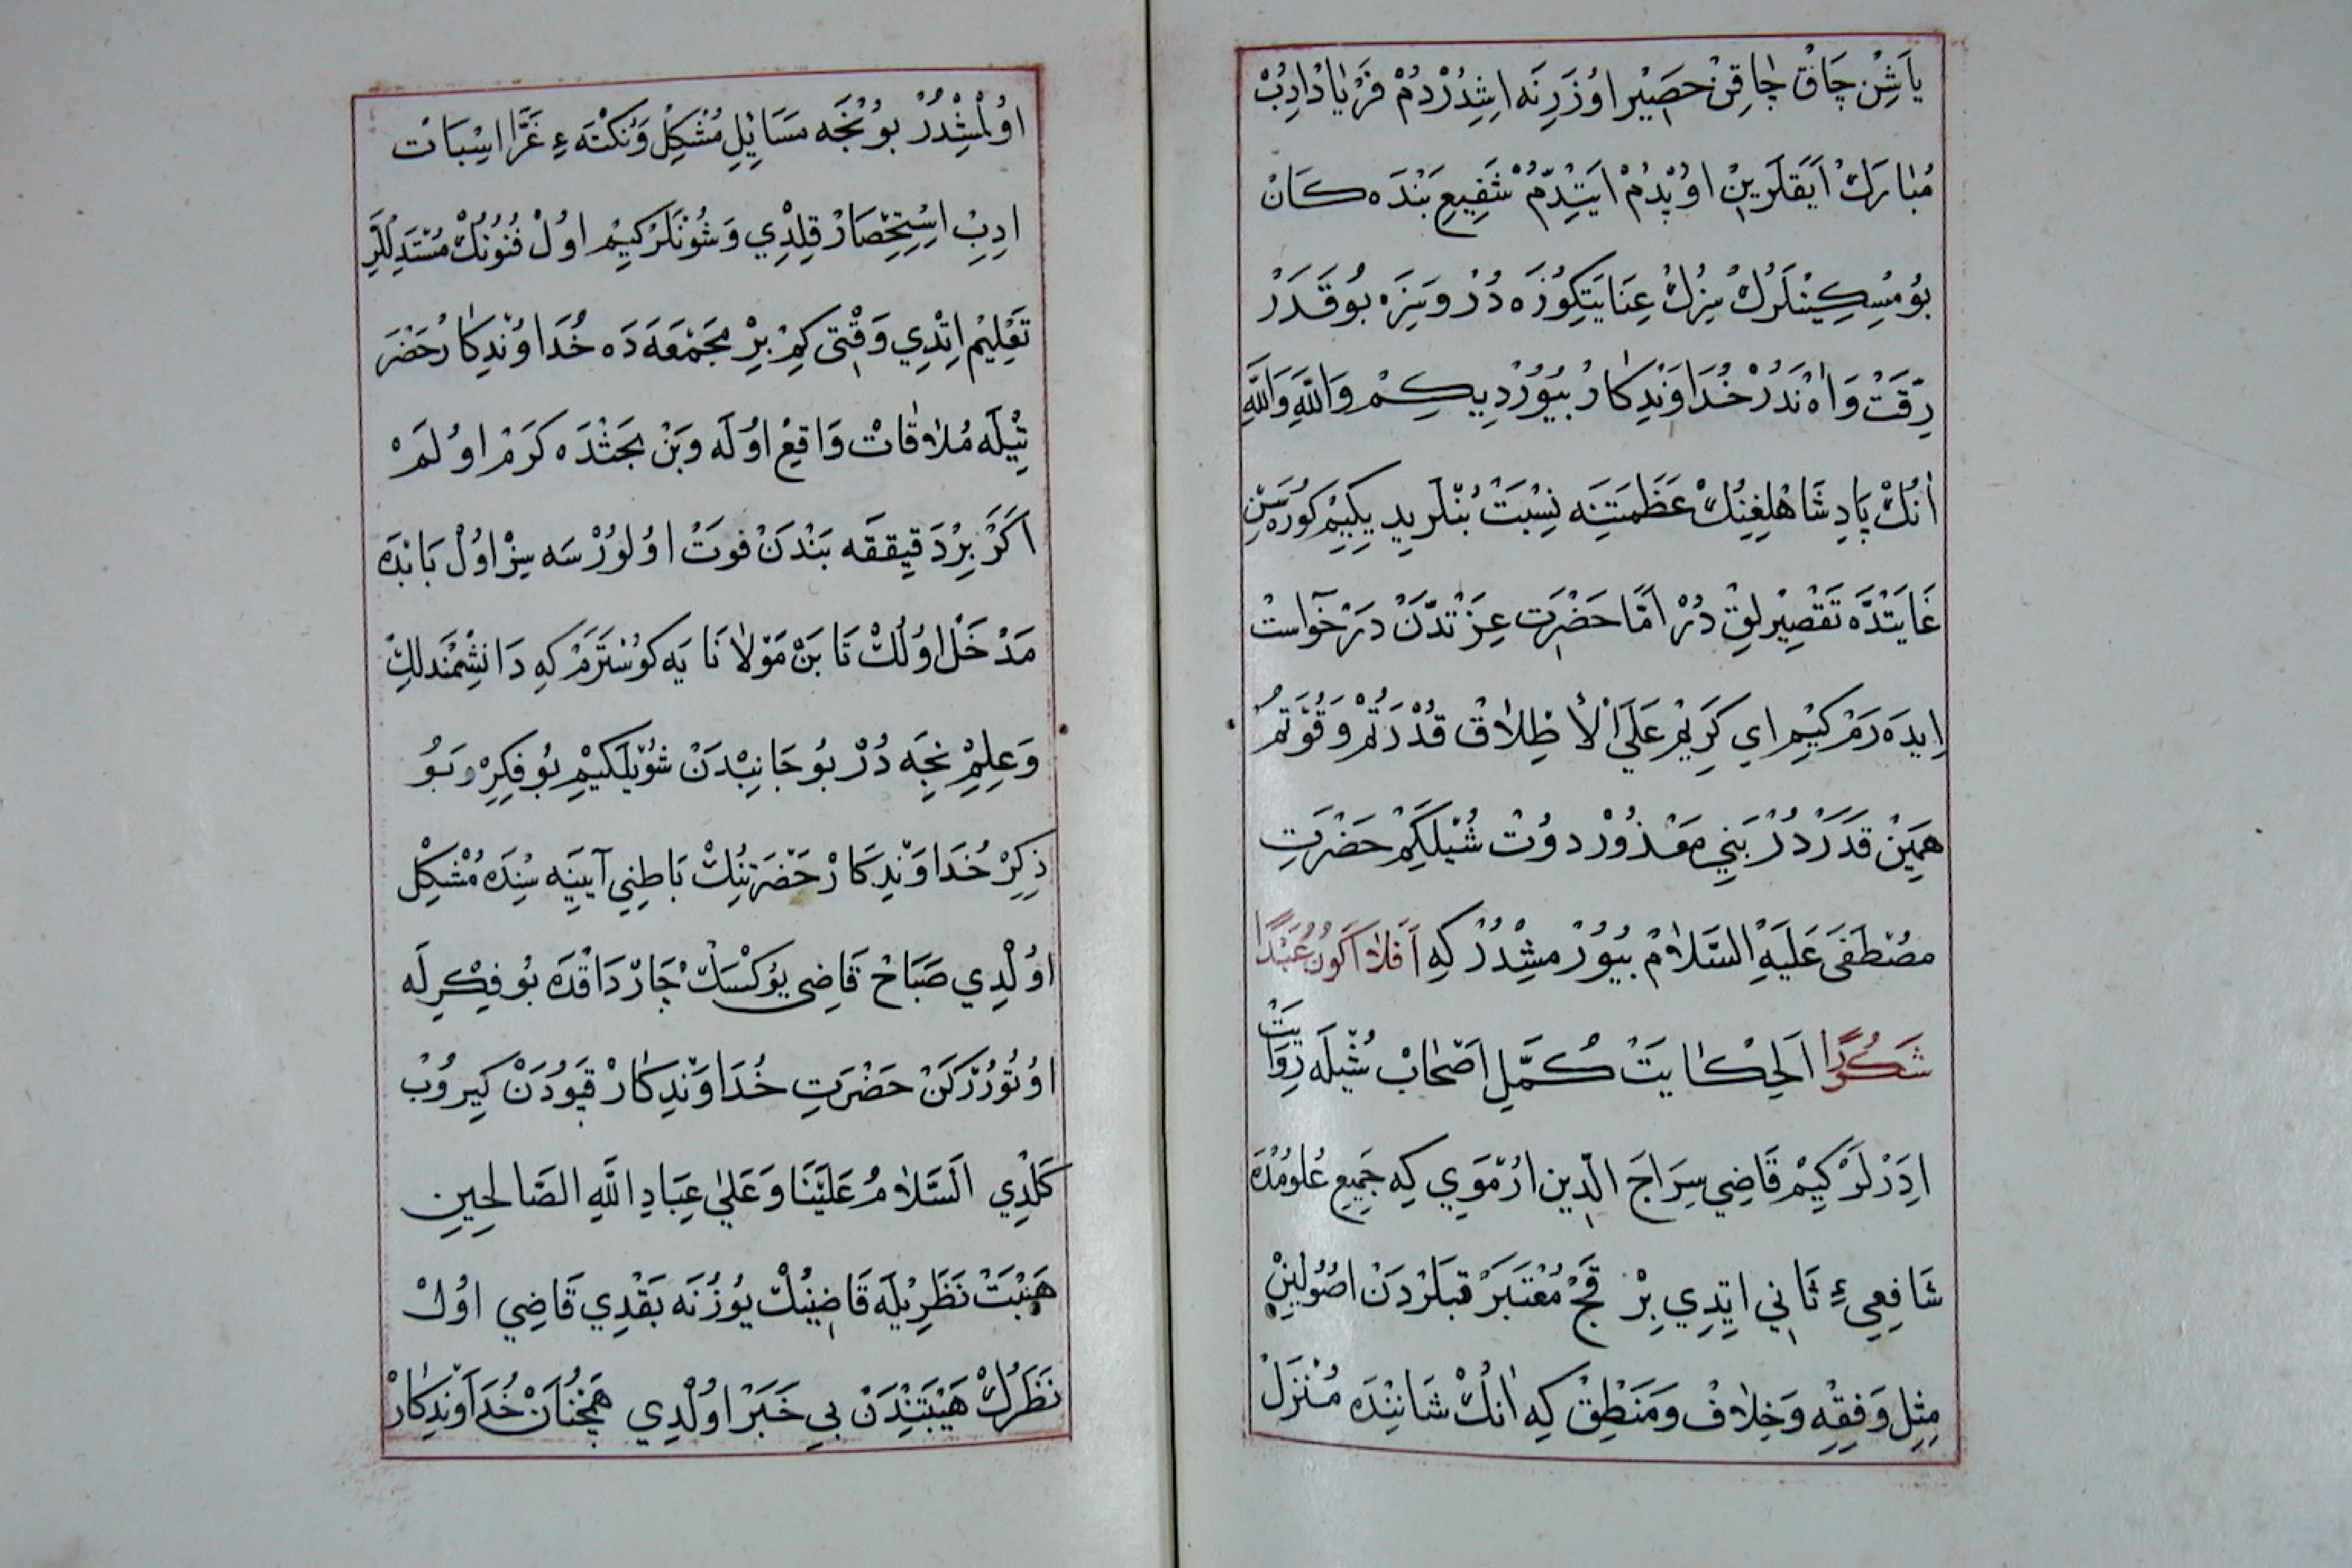 يَاشِنْ چَاقْ چَاقِنْ حَصِيْر اوُزَرِنَه اِشِدُرْدُمْ فَرْيَادْ ادِبْ
مُبَارَكْ اَيَقْلَرِينْ اوُپْدُمْ ايَتْدِمْ شَفِيعِ بَنْدَه كَانْ
بُو مِسْكِينْلَرُكْ سِزُكْ عِنَايَتِكُوزَه دُرْ وَسِزَه بُو قَدَرْ
رِقَّتْ وَاٰهْ نَدُرْ خُدَاوَنْدِكَارْ بُيُوُرْدِي كِمْ وَاللّٰهِ وَاللّٰهِ
اٰنُكْ پَادِشَاهْلِغِنِكْ عَظَمَتِنَه نِسْبَتْ بُنْلَر يِدِيكِيمْ كُورَه سِنْ
غَايَتْدَه تَقْصِيرْلِقْ دُرْ اَمَّا حَضْرَتِ عِزَّتْدَنْ دَرْخَوٰاسْتْ
اِيدَه رَمْ كِيمْ اي كَرِيمْ عَلَى الْأِطْلَاقْ قُدْرَتُمْ وَقُوَّتُمْ
هَمِينْ قَدَرْدُرْ بَنِي مَعْذُورْ دوُتْ شُيْلَكِمْ حَضْرَتِ
مُصْطَفَى عَلَيْهِ السَّلَامْ بُيُورْمِشْدُرْ كِه اَفَلاَ اَكُونُ عَبْدًا
شَكُورًا اَلْحِكَايَتْ كُمَّلِ اَصْحَابْ شُيْلَه رِوَايَتْ
اِدَرْلَرْ كِيمْ قَاضِي سِرَاجَ الدِّينِ ارُمَوِي كِه جَمِيعِ عُلُومْدَه
شَافِعِيءِ ثَانِي ايِدِي بِرْ قَچْ مُعْتَبَرْ قَبْلَرْدَنْ اصُولَينْ
مِثِلْ وَفِقْهِ وَخِلَافْ وَمَنْطِقْ كِه اٰنُكْ شَانِنْدَه مُنْزَلْ
اوُلْمِشْدُرْ بُو نْجَه مَسَايِلِ مُشْكِلْ وَنُكْتَه ءِ غَرَّا اسْبَاتْ
ادِبْ اِسْتِحْضَارْ قِلْدِي وَشُونْلَرْ كِيمْ اوُلْ فُنُونُكْ مُسْتَدِلْلَرِ
تَعْلِيمْ اِتْدِي وَقْتِى كِمْ بِرْ مَجْمَعَه دَه خُدَاوَنْدِكَارْ حَضْرَ
تِيْلَه مُلَاقَاتْ وَاقِعْ اوُلَه وَبَنْ بَحَثْدَه كَرَمْ اوُلَمْ
اَكَرْ بِرْ دَقِيقَه بَنْدَنْ فوَتْ اوُلُورْسَه سِزْ اوُلْ بَابْدَه
مَدْخَلْ اوُلُكْ تَا بَنْ مَوْلَانَا يَه كوُسْتَرَمْ كِه دَانِشْمَنْدلِكْ
وَعِلِمْ نِجَه دُرْ بُو جَانِبْدَنْ شُويْلَكِيمْ بُو فِكِرْ وَبُو
ذِكِرْ خُدَاوَنْدِكَارْ حَضْرَتِنِكْ بَاطِنِي آيِينَه سِنْدَه مُشْكِلْ
اوُلْدِي صَبَاحْ قَاضِى يُوكْسَكْ چَارْدَاقْدَه بُو فِكْرِلَه
اوُتُورُرْكَنْ حَضْرَتِ خُدَاوَنْدِكَارْ قَپُودَنْ كِيروُبْ
كَلْدِي اَلسَّلَامُ عَلَيْنَا وَعَلَى عِبَادِ اللّٰهِ الصَّالِحِينِ
هَيْبَتْ نَظَرِيْلَه قَاضِينُكْ يُوزُنَه بَقْدِي قَاضِي اوُلْ
نَظَرُكْ هَيْبَتِنْدَنْ بِي خَبَرْ اوُلْدِي هَمْچُنَانْ خُدَاوَنْدِكَارْ